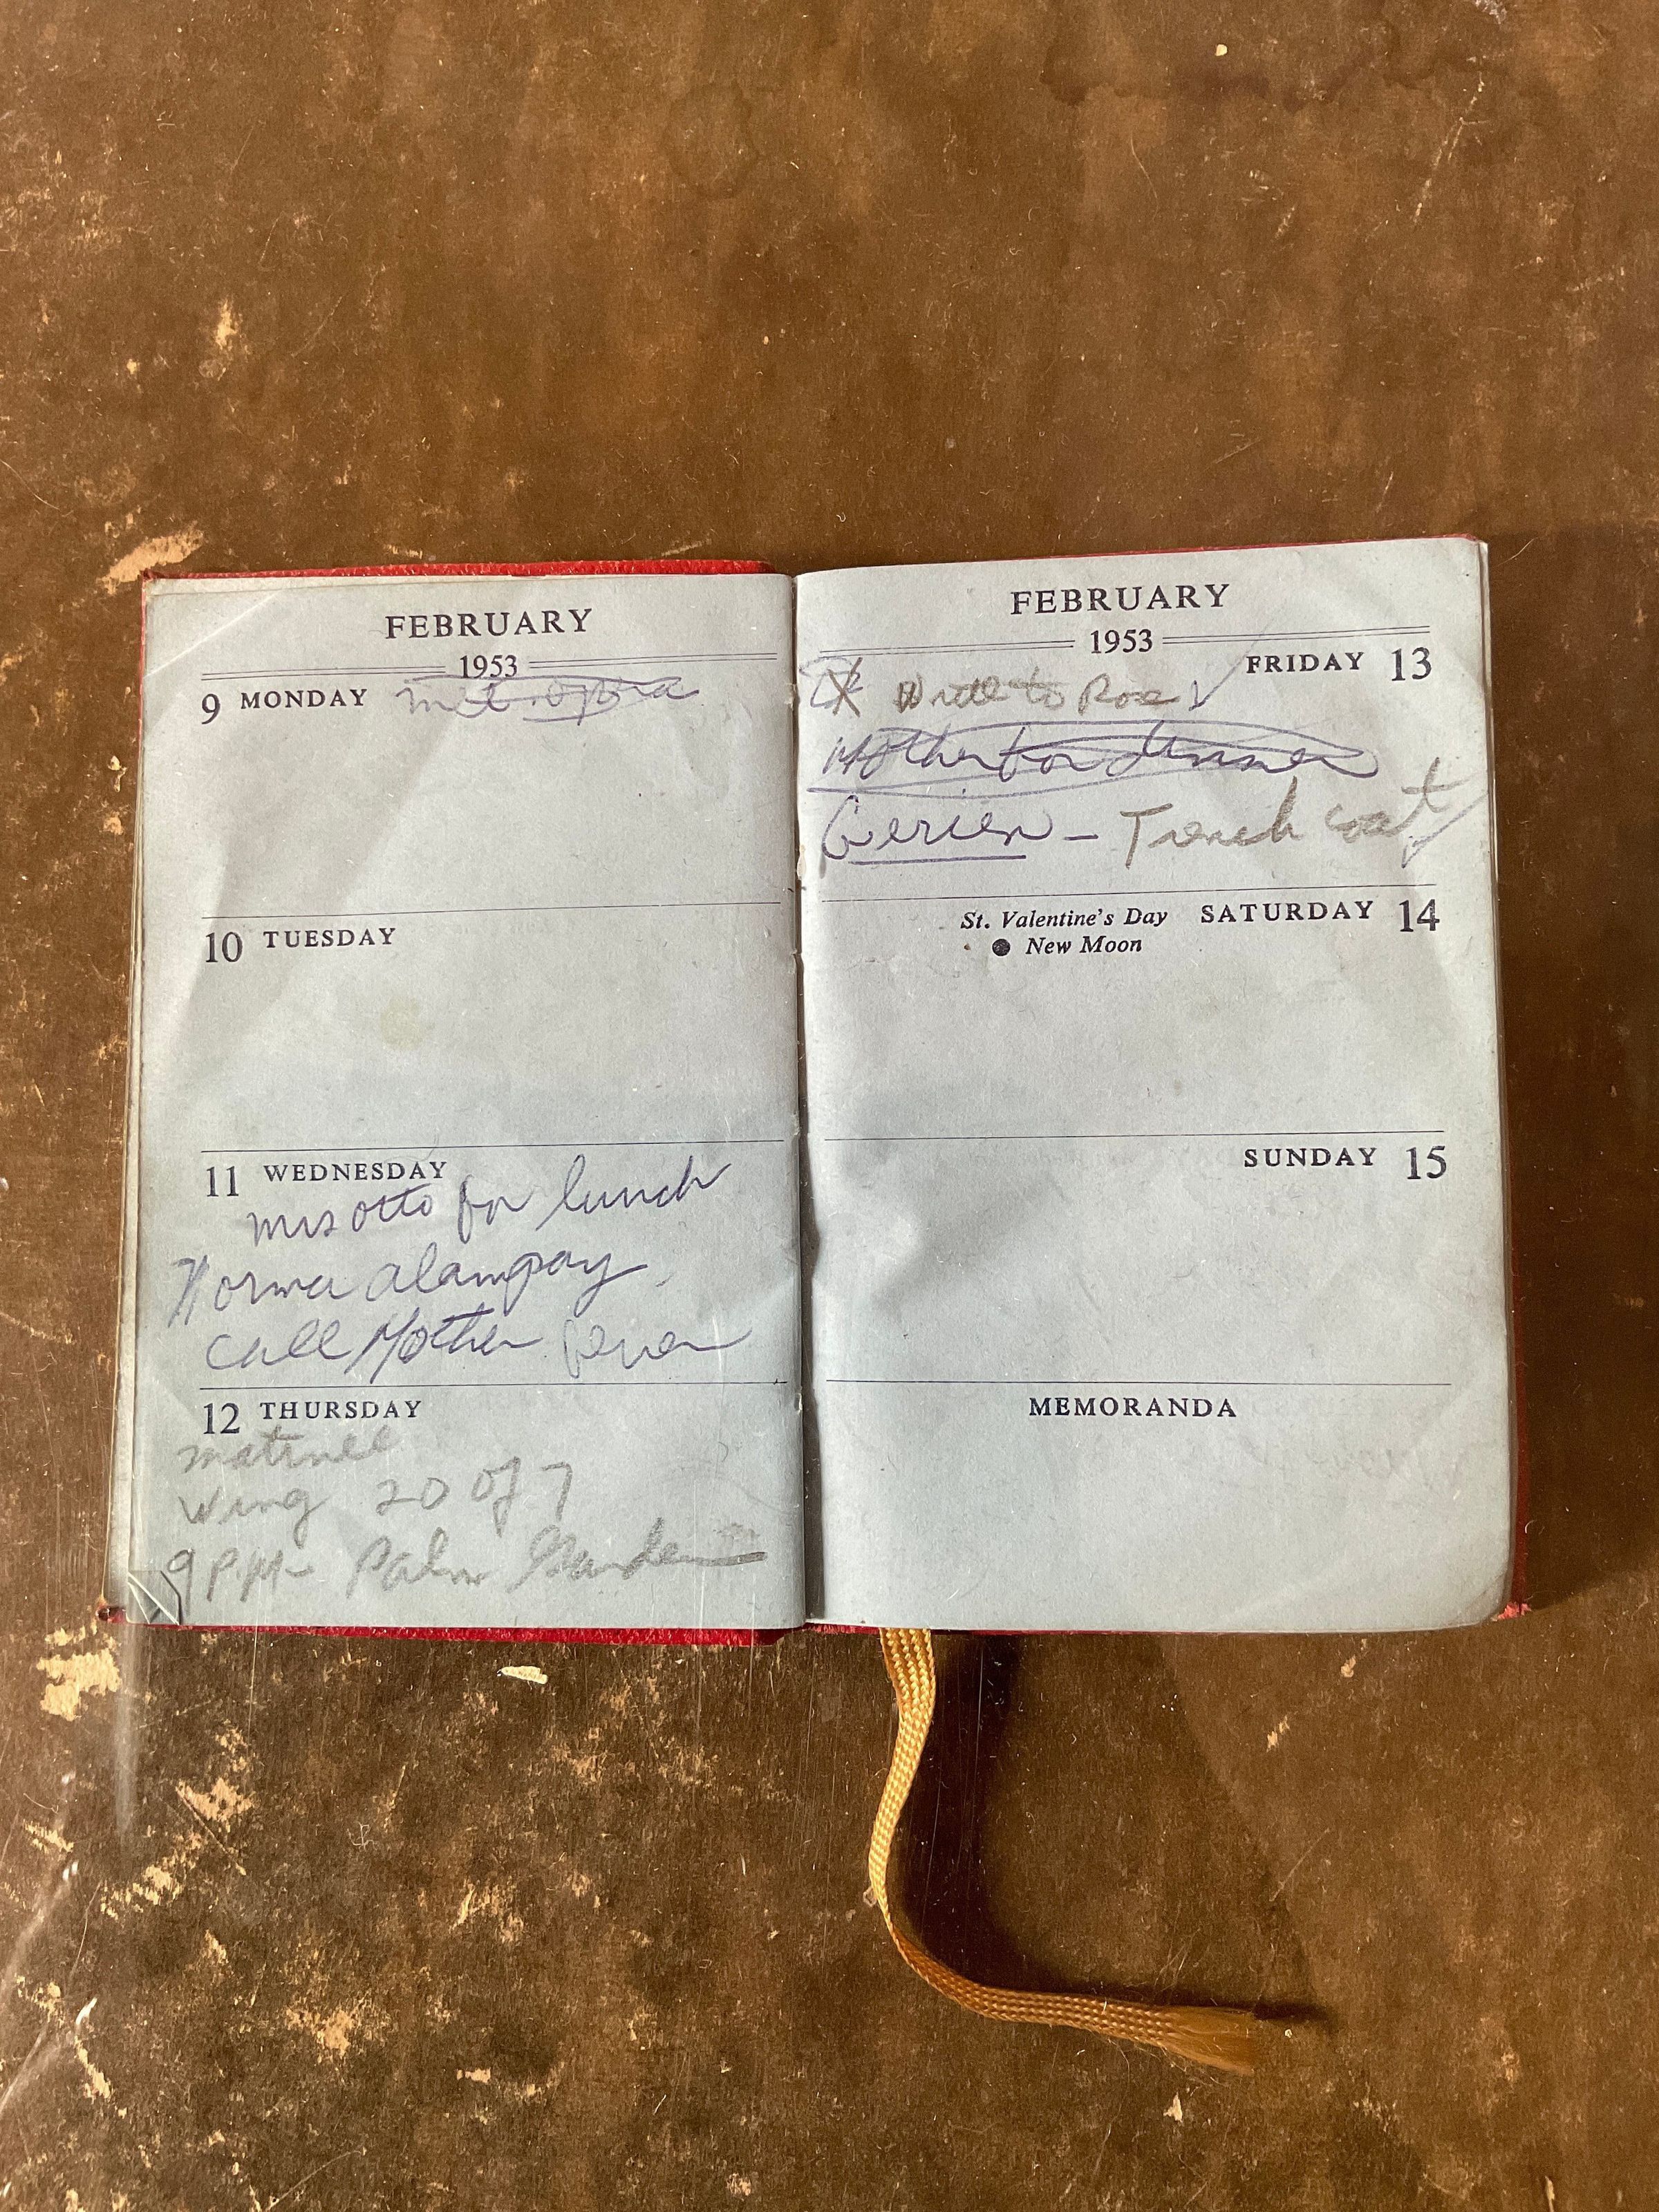 FEBRUARY
1953
9 MONDAY met. opera
10 TUESDAY
11 WEDNESDAY
mrs otto for lunch
Norma alampay
call Mother
12 THURSDAY
matinee
Wing 20 of 7
9 P.M- Palm Garden
FEBRUARY
1953
FRIDAY 13
Write to Rose
Mother for dinner
Trench coat
St. Valentine's Day SATURDAY 14
New Moon
SUNDAY 15
MEMORANDA